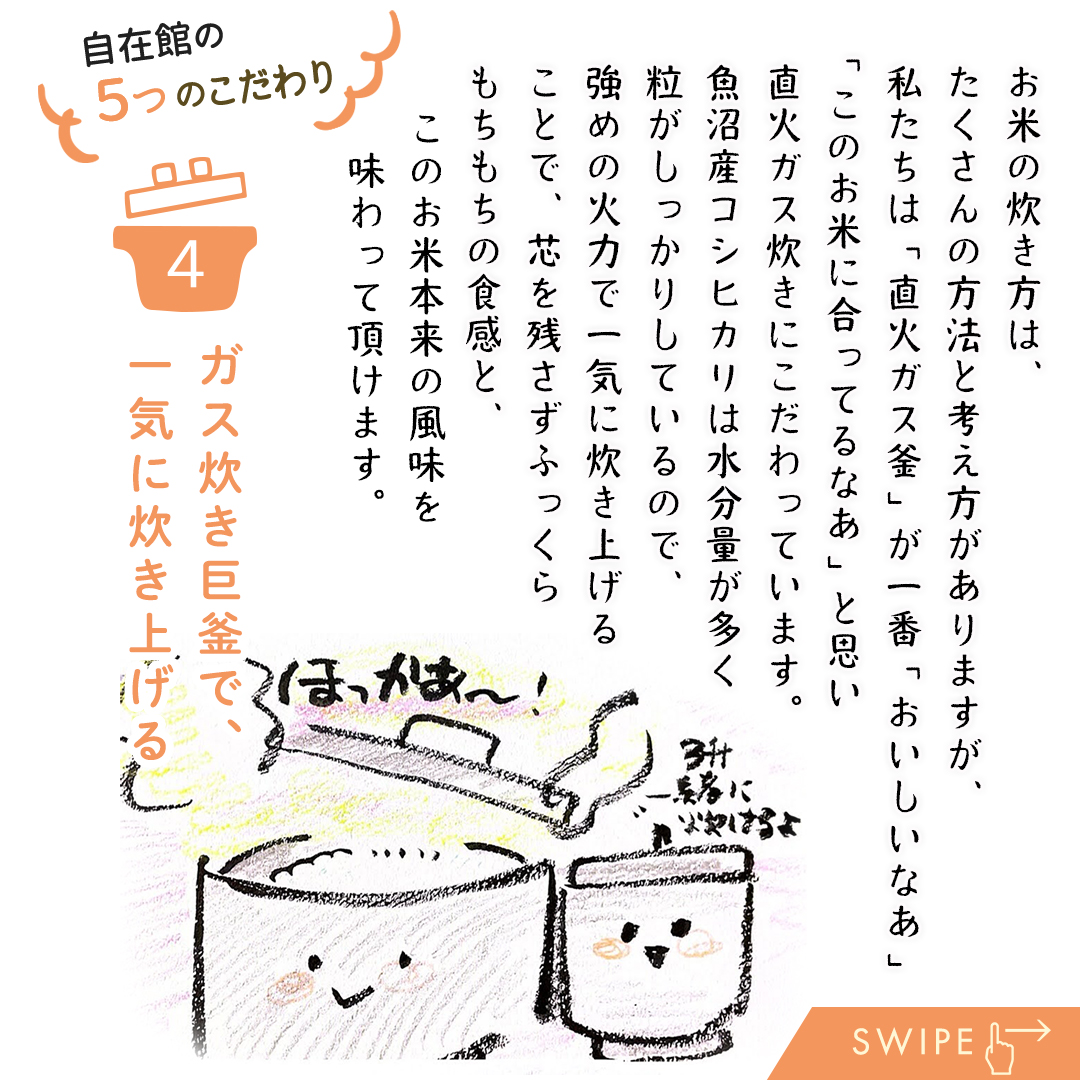 自在館の
5つのこだわり
4
ガス炊き巨釜で、
一気に炊き上げる
お米の炊き方は、
たくさんの方法と考え方がありますが、
私たちは「直火ガス釜」が一番「おいしいなあ」
「このお米に合ってるなあ」と思い
直火ガス炊きにこだわっています。
魚沼産コシヒカリは水分量が多く
粒がしっかりしているので、
強めの火力で一気に炊き上げる
ことで、芯を残さずふっくら
もちもちの食感と、
このお米本来の風味を
味わって頂けます。
ほっかぁ〜!
3升
SWIPE